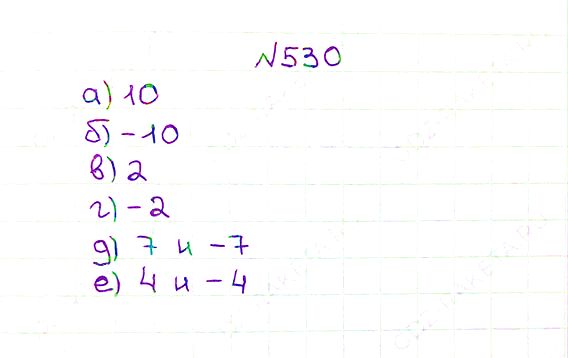 №530
а) 10
б) -10
в) 2
г) -2
д) 7 и -7
е) 4 и -4